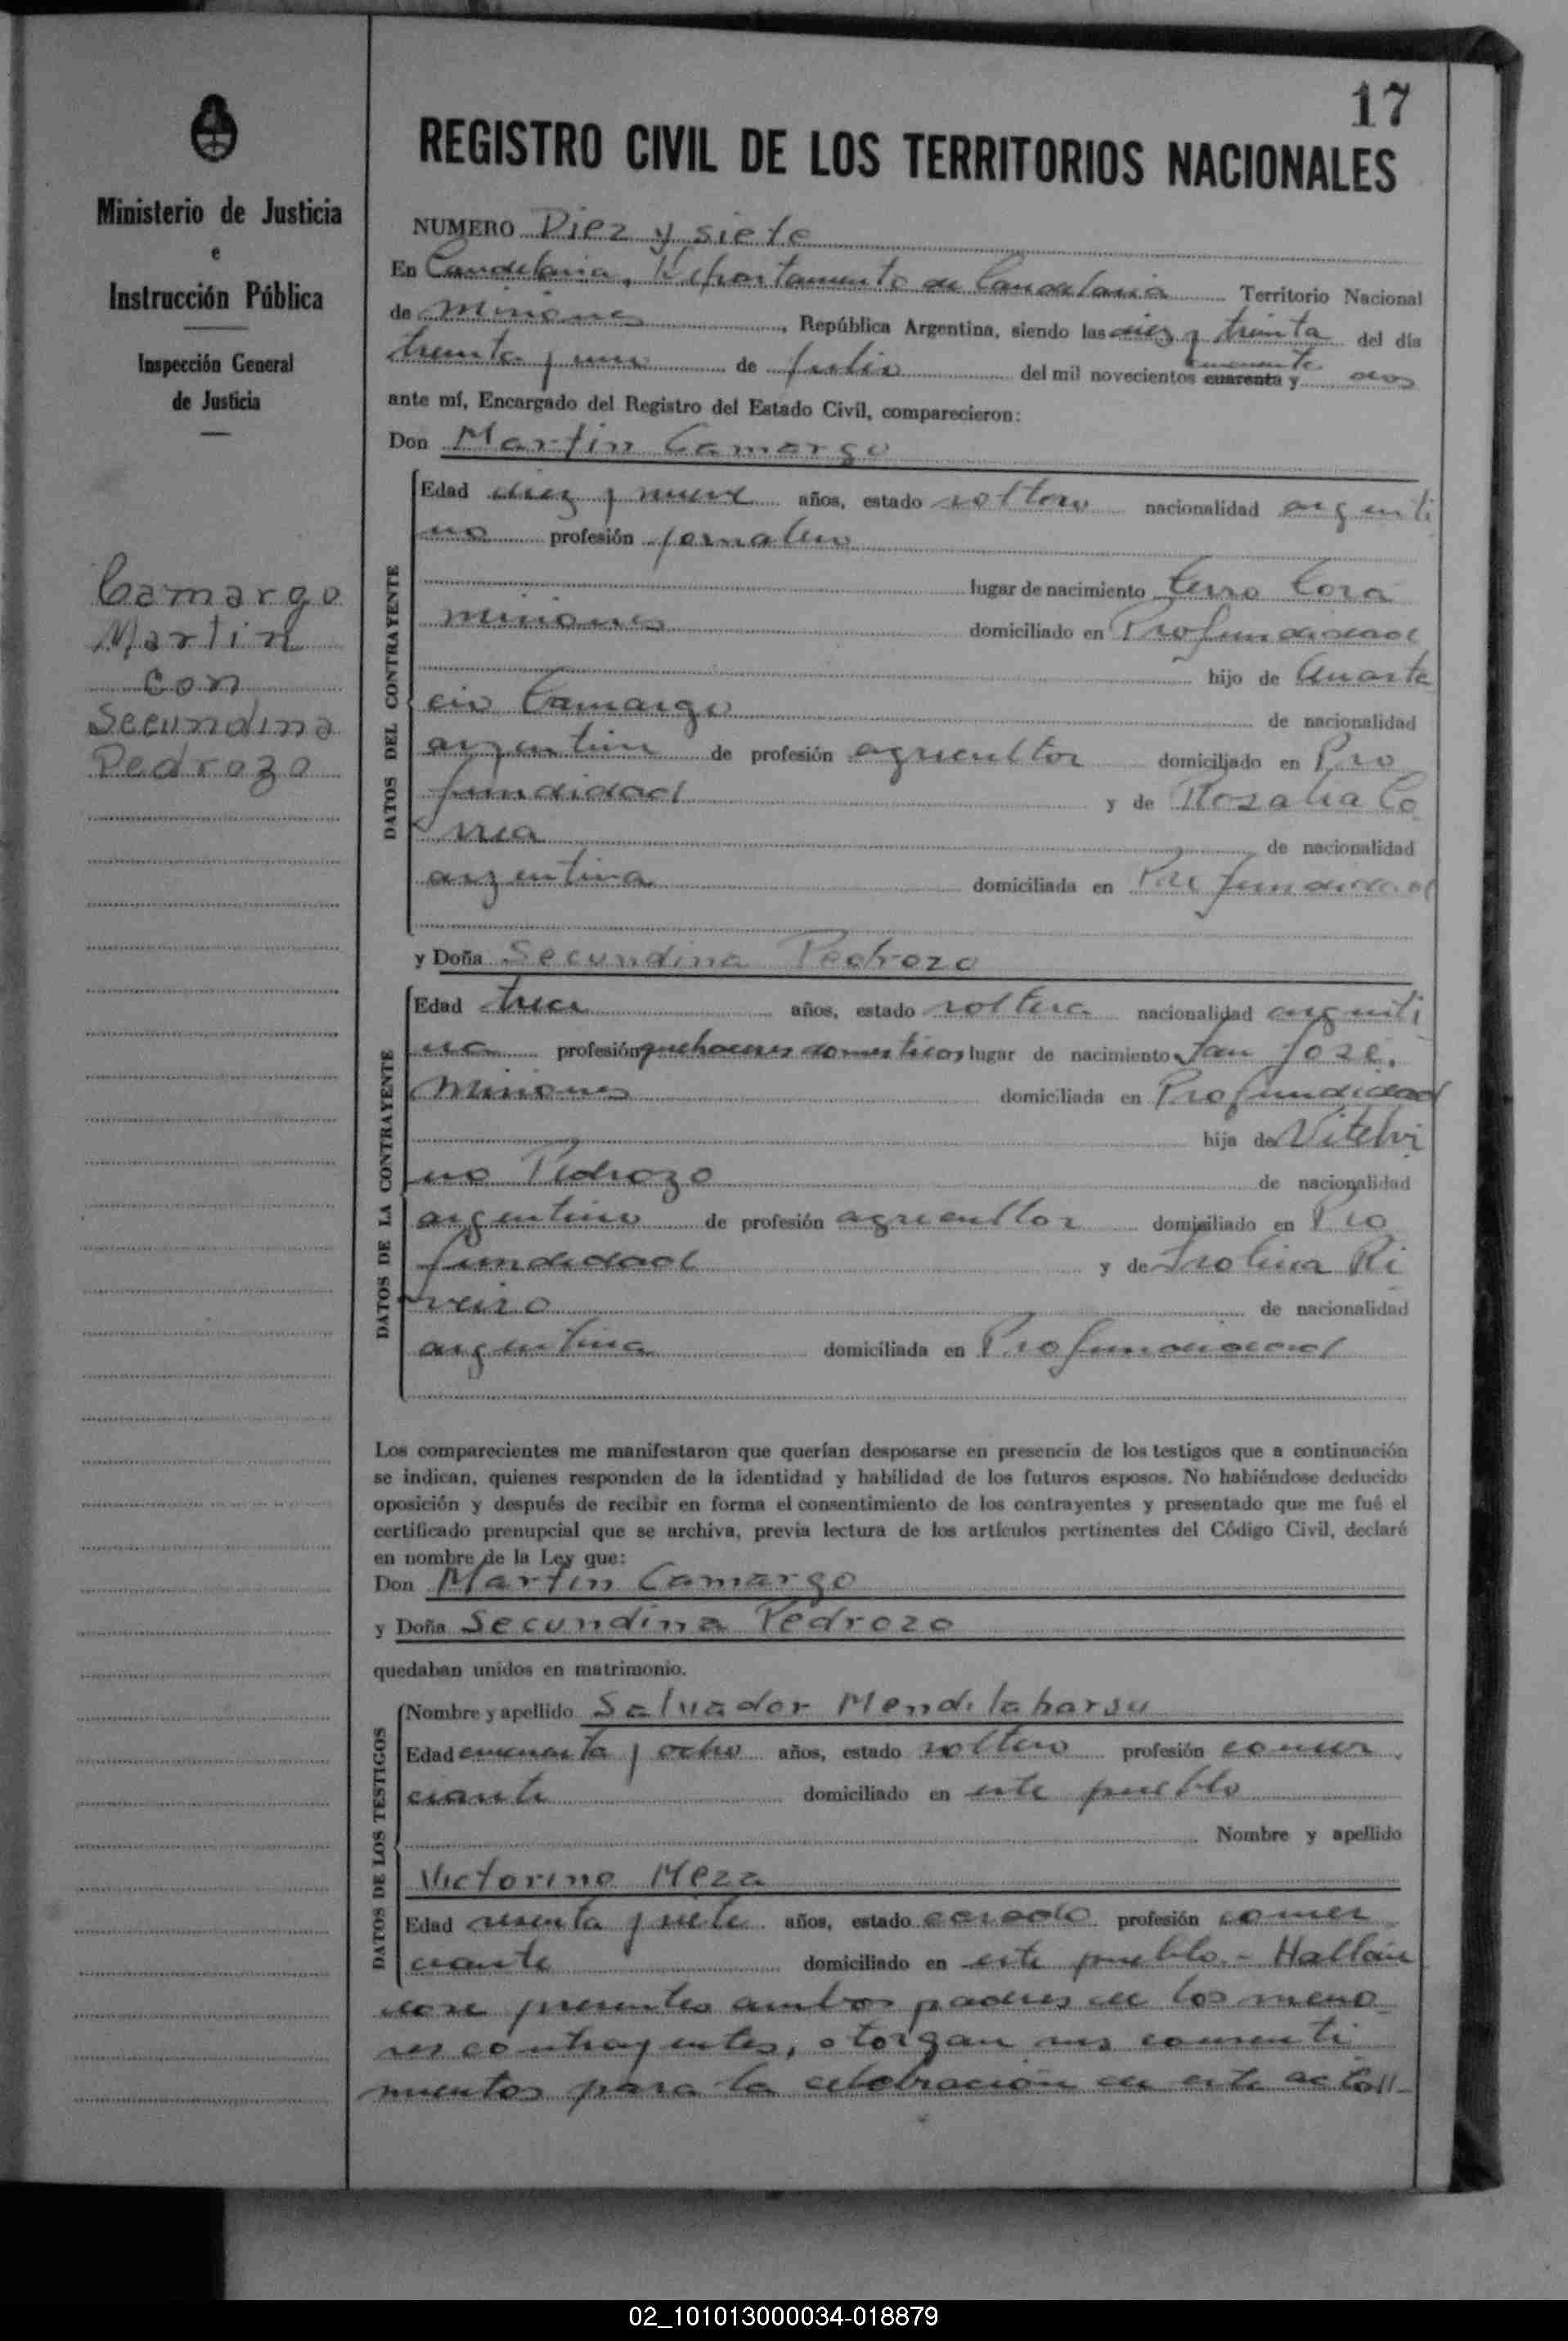 17
Ministerio de Justicia
e
Instrucción Pública
Inspección General
de Justicia
Camargo
Martin
con
Secundina
Pedrozo
REGISTRO CIVIL DE LOS TERRITORIOS NACIONALES
NUMERO Diez y siete
En Candelaria, Departamento de Candelaria Territorio Nacional
de Misiones, República Argentina, siendo las diez y treinta del día
treinta y uno de julio del mil novecientos cuarenta y cincuenta dos
ante mí, Encargado del Registro del Estado Civil, comparecieron:
Don Martin Camargo
DATOS DEL CONTRAYENTE
Edad diez y nueve años, estado soltero nacionalidad argenti
no profesión jornalero
lugar de nacimiento Cerro Corá
Misiones domiciliado en Profundidad
hijo de Anasta
cio Camargo de nacionalidad
argentino de profesión agricultor domiciliado en Pro
fundidad y de Rosalia Co
rrea de nacionalidad
argentina domiciliada en Profundidad
y Doña Secundina Pedrozo
DATOS DE LA CONTRAYENTE
Edad trece años, estado soltera nacionalidad argenti
na profesión quehaceres domesticos lugar de nacimiento San José,
Misiones domiciliada en Profundidad
hija de Vitelvi
no Pedrozo de nacionalidad
argentino de profesión agricultor domiciliado en Pro
fundidad y de Isolina Ri
veiro de nacionalidad
argentina domiciliada en Profundidad
Los comparecientes me manifestaron que querían desposarse en presencia de los testigos que a continuación
se indican, quienes responden de la identidad y habilidad de los futuros esposos. No habiéndose deducido
oposición y después de recibir en forma el consentimiento de los contrayentes y presentado que me fué el
certificado prenupcial que se archiva, previa lectura de los artículos pertinentes del Código Civil, declaré
en nombre de la Ley que:
Don Martin Camargo
y Doña Secundina Pedrozo
quedaban unidos en matrimonio.
DATOS DE LOS TESTIGOS
Nombre y apellido Salvador Mendilaharsu
Edad cincuenta y ocho años, estado soltero profesión comer
ciante domiciliado en este pueblo
Nombre y apellido
Victorino Meza
Edad sesenta y siete años, estado casado profesión comer
ciante domiciliado en este pueblo.- Hallán
dose presentes ambos padres de los meno
res contrayentes, otorgan sus consenti
mientos para la celebración de este acto//-
02_101013000034-018879